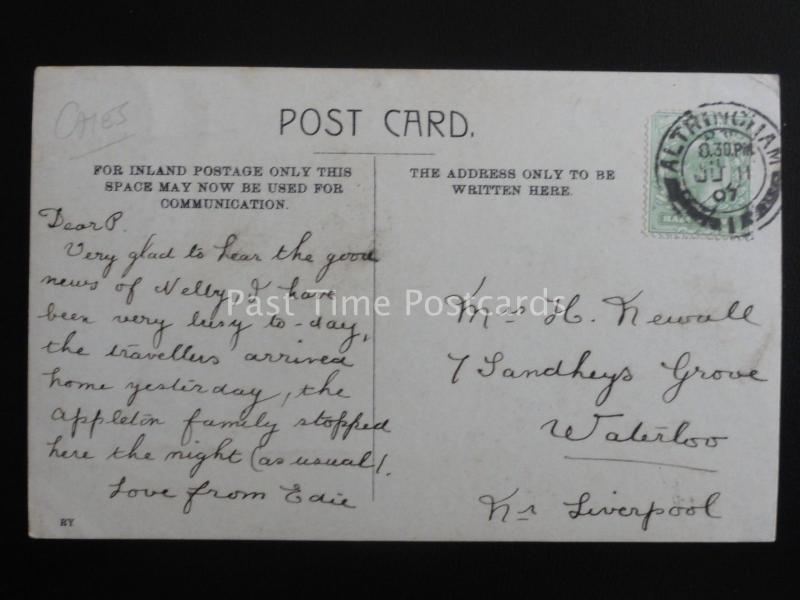 Cats
POST CARD.
FOR INLAND POSTAGE ONLY THIS
SPACE MAY NOW BE USED FOR
COMMUNICATION.
THE ADDRESS ONLY TO BE
WRITTEN HERE.
ALTRINCHAM
8.30PM
JU 11
1
Dear P.
Very glad to hear the good
news of Nelly, I have
been very busy to-day,
the travellers arrived
home yesterday, the
Appleton family stopped
here the night (as usual).
Love from Edie
Mrs H. Newall
7 Sandheys Grove
Waterloo
Nr Liverpool
RY
Past Time Postcards